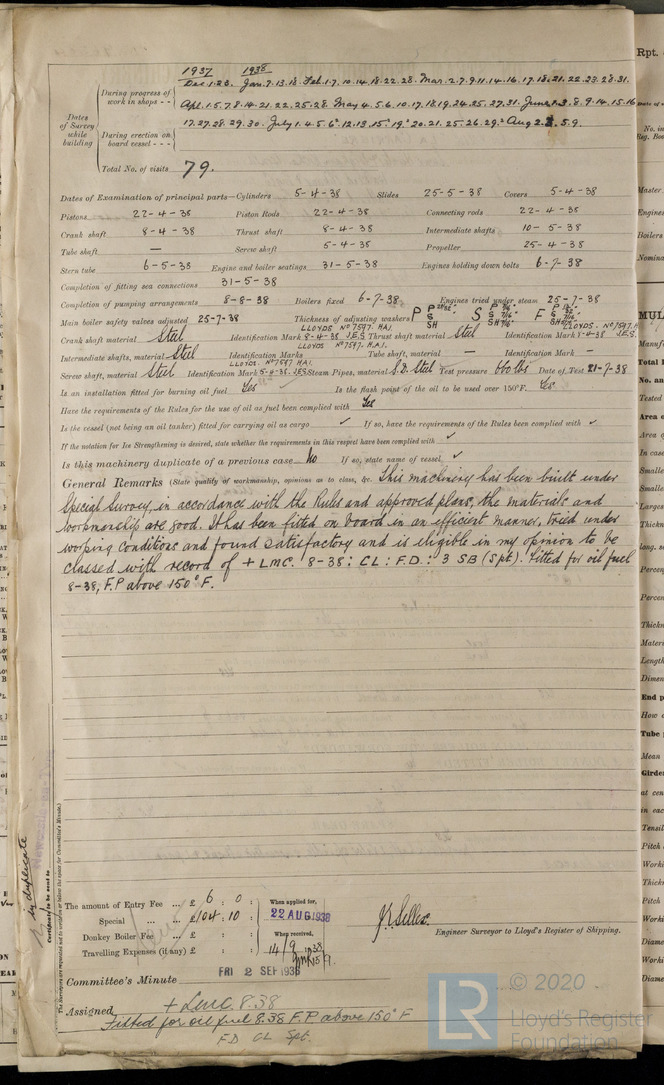 1937 1938
During progress of work in shops - - Dec 1.23. Jan.7.13.18. Feb.1.7.10.14.18.22.28. Mar.2.7.9.11.14.16.17.18.21.22.23.28.31.
Apl.1.5.7.8.14.21.22.25.28. May 4.5.6.10.17.18.19.24.25.27.31. June 1.3.8.9.14.15.16
Dates of Survey while building
During erection on board vessel - - - 17.27.28.29.30. July 1.4.5.6.12.13.15.19.20.21.25.26.29. Aug 2.3.5.9.
Total No. of visits 79.
Dates of Examination of principal parts—Cylinders 5-4-38 Slides 25-5-38 Covers 5-4-38
Pistons 22-4-38 Piston Rods 22-4-38 Connecting rods 22-4-38
Crank shaft 8-4-38 Thrust shaft 8-4-38 Intermediate shafts 10-5-38
Tube shaft — Screw shaft 5-4-38 Propeller 25-4-38
Stern tube 6-5-38 Engine and boiler seatings 31-5-38 Engines holding down bolts 6-7-38
Completion of fitting sea connections 31-5-38
Completion of pumping arrangements 8-8-38 Boilers fixed 6-7-38 Engines tried under steam 25-7-38
Main boiler safety valves adjusted 25-7-38 Thickness of adjusting washers P S F
Crank shaft material Steel Identification Mark LLOYDS No 7597. 8-4-38 J.E.S. Thrust shaft material Steel Identification Mark LLOYDS. No 7597.H. J.E.S.
Intermediate shafts, material Steel Identification Marks LLOYDS No 7597. H.A.I. Tube shaft, material — Identification Mark —
Screw shaft, material Steel Identification Mark LLOYDS No 7597 HAI. 5-4-38. J.E.S. Steam Pipes, material S.D. Steel Test pressure 660 lbs Date of Test 21-7-38
Is an installation fitted for burning oil fuel Yes Is the flash point of the oil to be used over 150°F. Yes
Have the requirements of the Rules for the use of oil as fuel been complied with Yes
Is the vessel (not being an oil tanker) fitted for carrying oil as cargo ✓ If so, have the requirements of the Rules been complied with ✓
If the notation for Ice Strengthening is desired, state whether the requirements in this respect have been complied with ✓
Is this machinery duplicate of a previous case No If so, state name of vessel ✓
General Remarks (State quality of workmanship, opinions as to class, &c. This machinery has been built under
Special Survey, in accordance with the Rules and approved plans, the materials and
workmanship are good. It has been fitted on board in an efficient manner, tried under
working conditions and found satisfactory and is eligible in my opinion to be
classed with record of + LMC. 8-38: CL: F.D.: 3 SB (Spt). Fitted for oil fuel
8-38, F.P above 150°F.
in duplicate
Certificate to be sent to
The amount of Entry Fee ... £ 6 : 0 :
Special ... ... £ 104 . 10 :
Donkey Boiler Fee ... £ : :
Travelling Expenses (if any) £ : :
When applied for, 22 AUG 1938
When received, 14/9 1938
Engineer Surveyor to Lloyd's Register of Shipping.
Committee's Minute FRI 2 SEP 1938
Assigned + LMC. 8.38
Fitted for oil fuel 8.38 F.P above 150°F
F.D CL Spt.
Rpt.
MUL
© 2020
LR
Lloyd's Register
Foundation